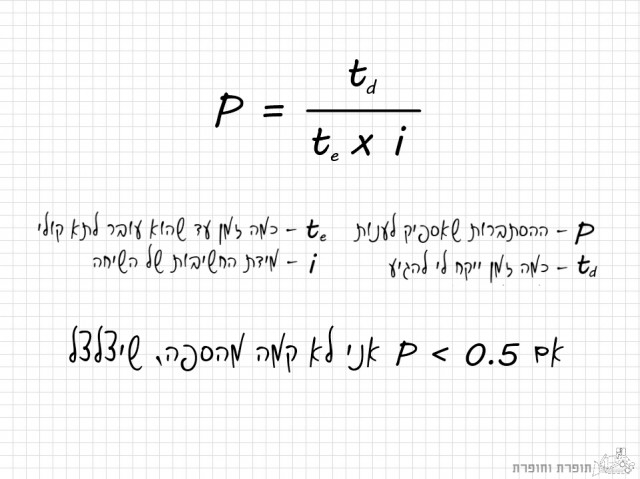 P = t_d / (t_e x i)
P – ההסתברות שאספיק לענות
t_d – כמה זמן ייקח לי להגיע
t_e – כמה זמן עד שהוא עובר לתא קולי
i – מידת החשיבות של השיחה
אם P < 0.5 אני לא קמה מהספה, שיצלצל
תופרת וחופרת